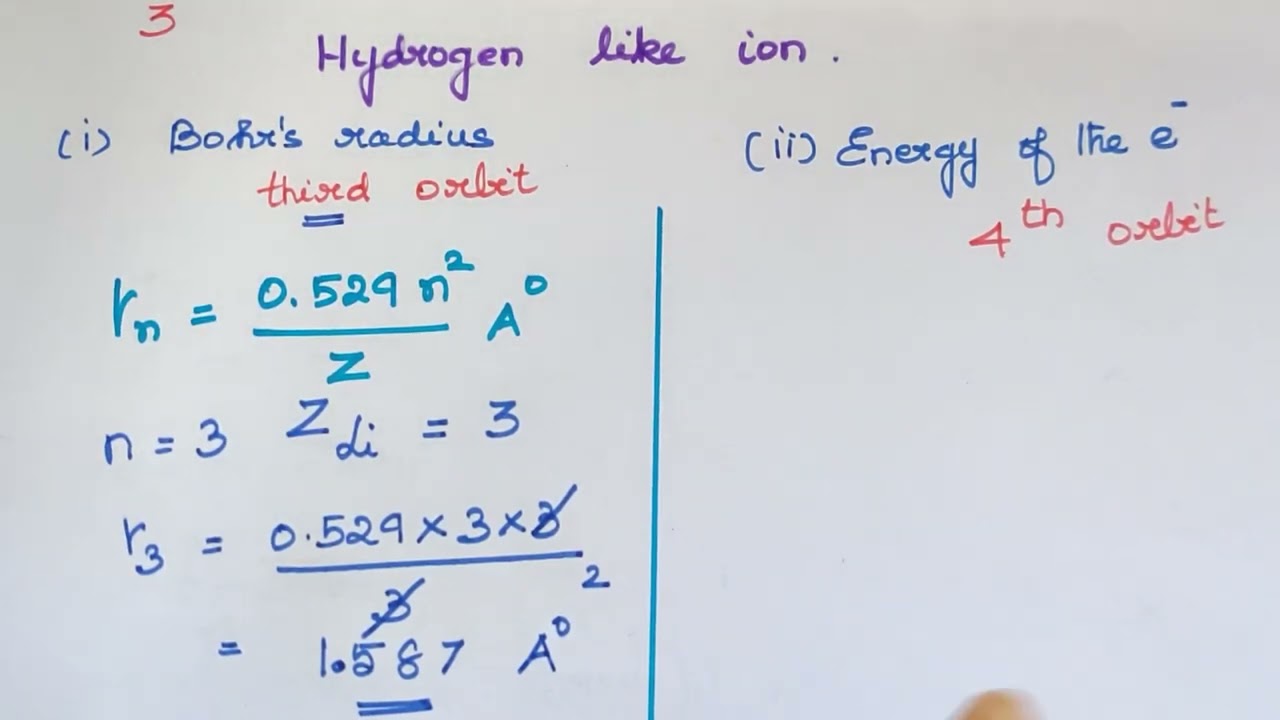 3
Hydrogen like ion.
(i) Bohr's radius
third orbit
rₙ = 0.529 n² / Z A⁰
n = 3 Z_Li = 3
r₃ = 0.529 × 3 × 3 / 3
2
= 1.587 A⁰
(ii) Energy of the e⁻
4th orbit